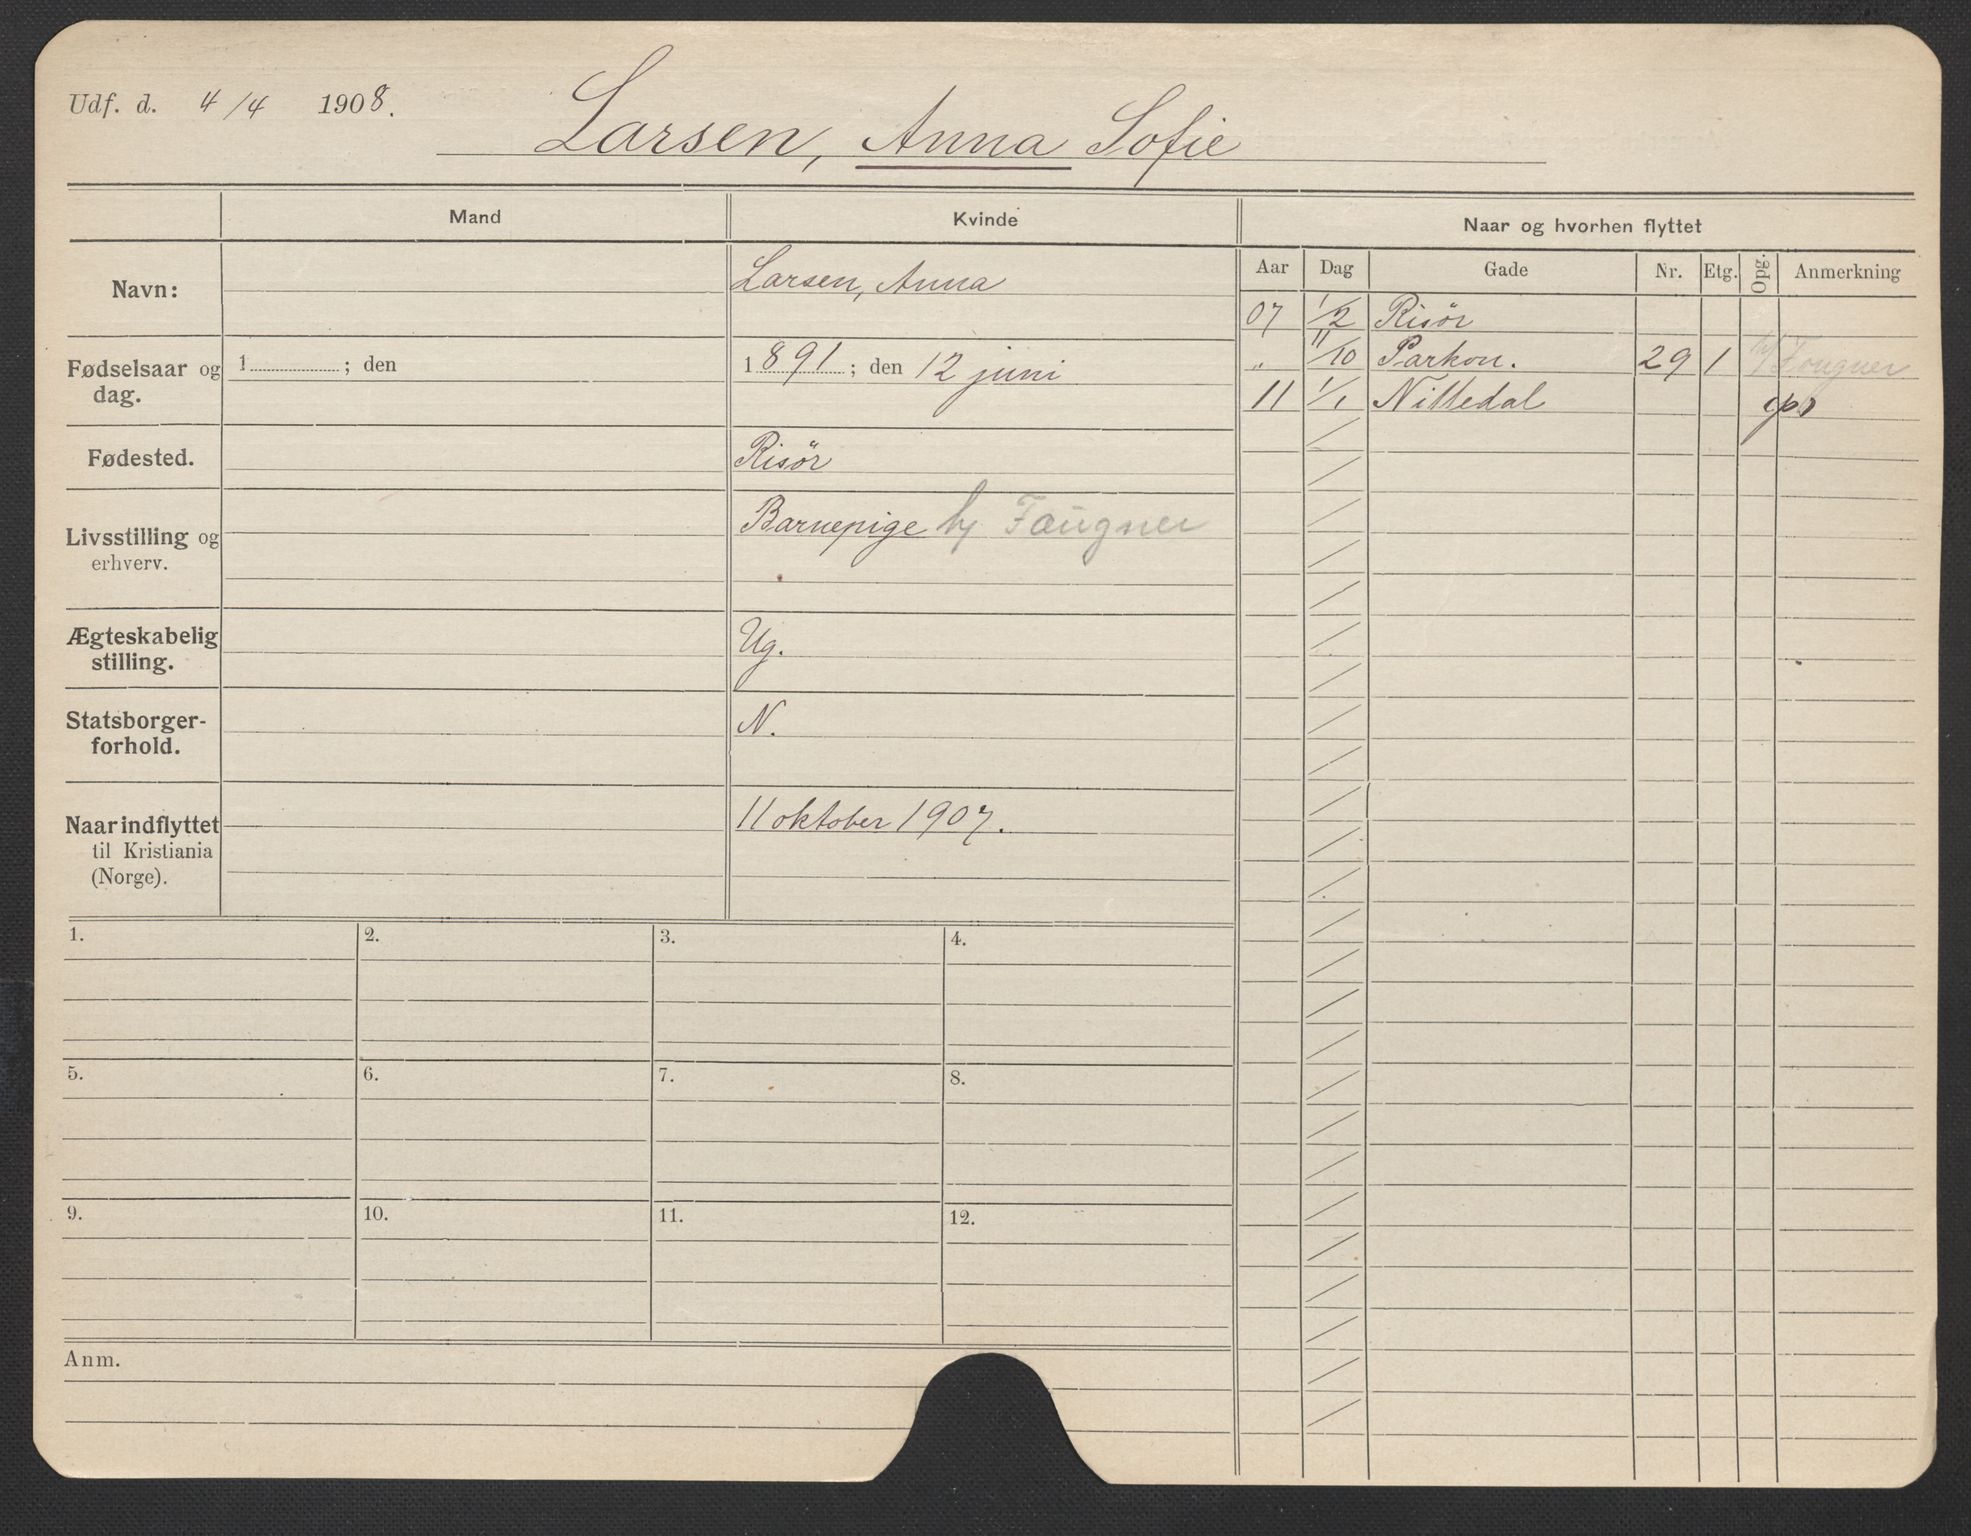 Udf. d. 4/4 1908.
Larsen, Anna Sofie
Mand
Kvinde
Naar og hvorhen flyttet
Aar Dag Gade Nr. Etg. Opg. Anmerkning
Navn:
Larsen, Anna
07 1/2 Risör
Fødselsaar og dag.
1 ; den
1891 ; den 12 juni
„ 11/10 Parkvn. 29 1 Fougner
11 1/1 Nittedal
Fødested.
Risör
Livsstilling og erhverv.
Barnepige Faugner
Ægteskabelig stilling.
Ug.
Statsborger-
forhold.
N.
Naar indflyttet
til Kristiania
(Norge).
11 oktober 1907.
1. 2. 3. 4.
5. 6. 7. 8.
9. 10. 11. 12.
Anm.